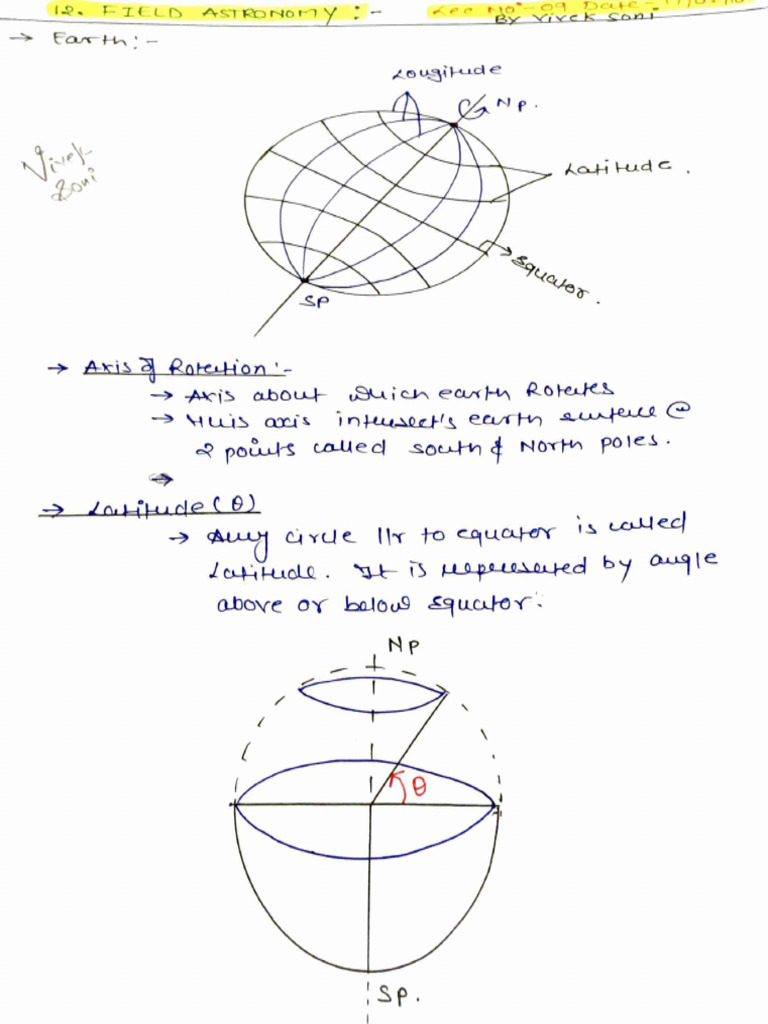 12. FIELD ASTRONOMY :-
Lec No:- 09 Date-
By Vivek Soni
→ Earth:-
Longitude
NP.
Vivek
Soni
Latitude.
Equator.
SP
→ Axis of Rotation:-
→ Axis about which earth Rotates
→ This axis intersect's earth surface @
2 points called south & North poles.
→
→ Latitude (θ)
→ Any circle llr to equator is called
Latitude. It is represented by angle
above or below Equator.
NP
θ
SP.